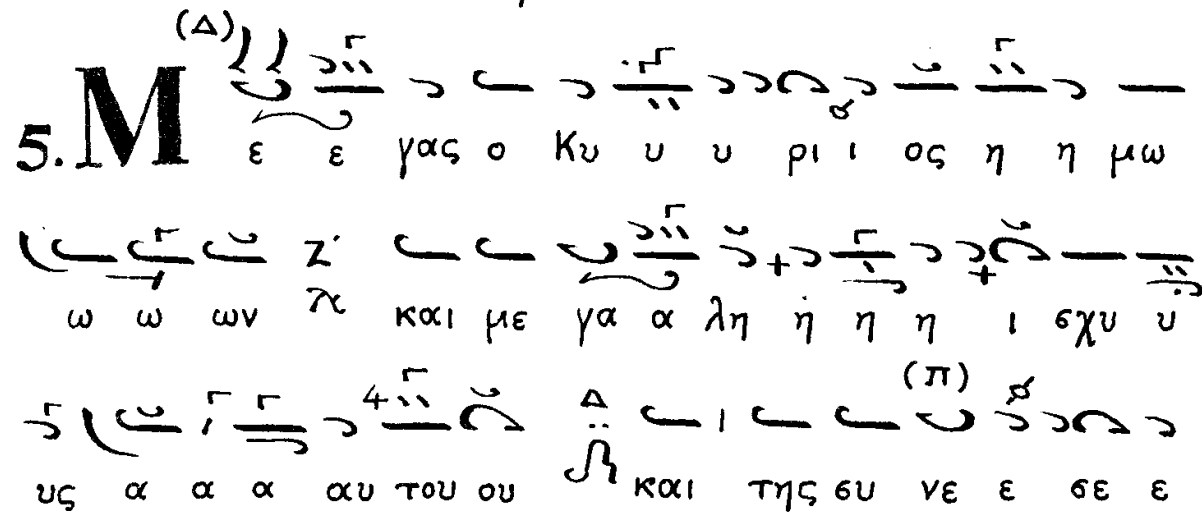 (Δ)
5. Μ ε ε γας ο Κυ υ υ ρι ι ος η η μω
ω ω ων Ζ΄ και με γα α λη ή η η ι σχυ υ
(π)
υς α α α αυ του ου Δ και της συ νε ε σε ε